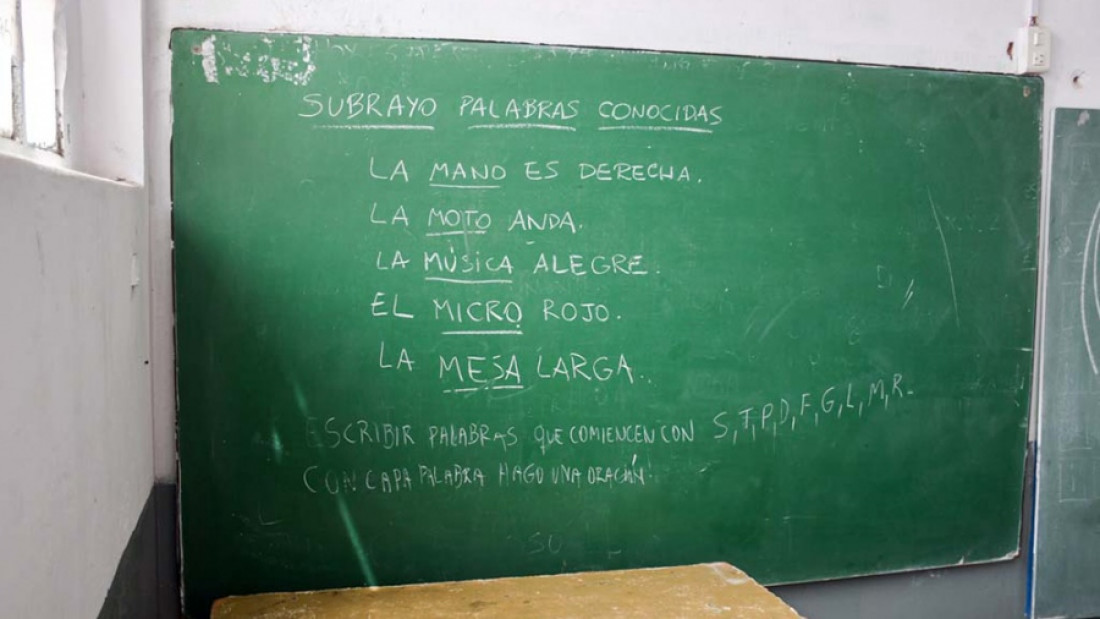 SUBRAYO PALABRAS CONOCIDAS
LA MANO ES DERECHA.
LA MOTO ANDA.
LA MÚSICA ALEGRE.
EL MICRO ROJO.
LA MESA LARGA.
ESCRIBIR PALABRAS QUE COMIENCEN CON S, T, P, D, F, G, L, M, R.
CON CADA PALABRA HAGO UNA ORACIÓN.
SU